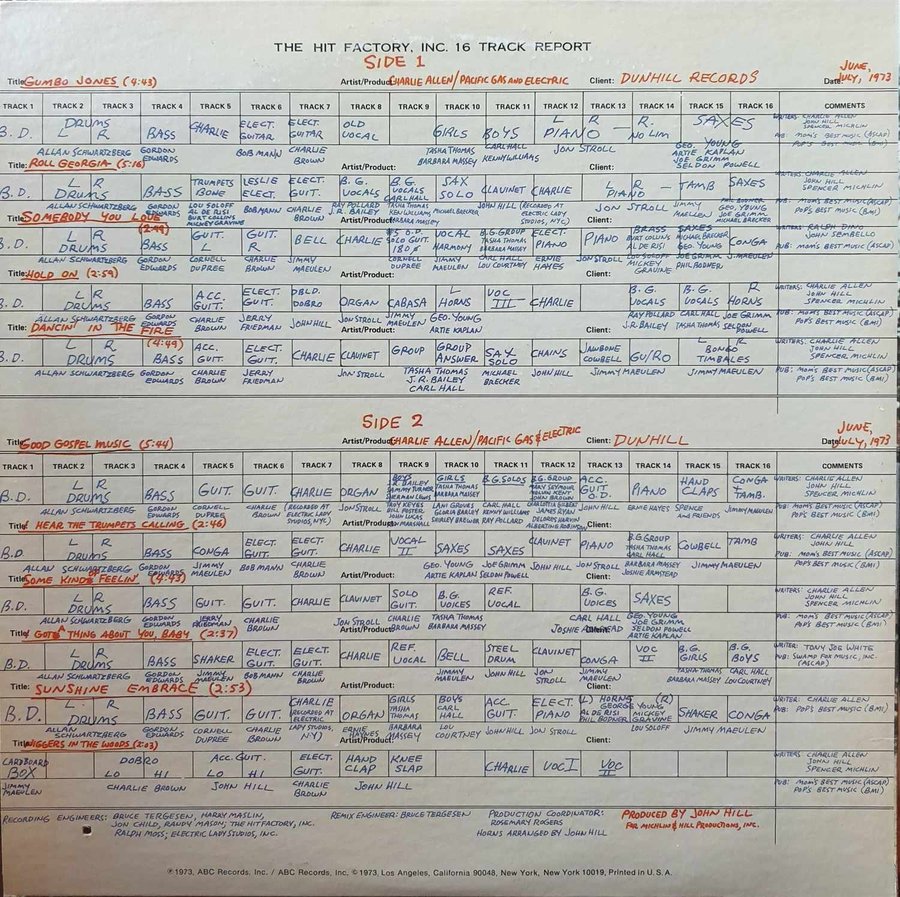 THE HIT FACTORY, INC. 16 TRACK REPORT
SIDE 1
Title: GUMBO JONES (4:43) Artist/Product: CHARLIE ALLEN/PACIFIC GAS AND ELECTRIC Client: DUNHILL RECORDS Date: JUNE, JULY, 1973
TRACK 1 TRACK 2 TRACK 3 TRACK 4 TRACK 5 TRACK 6 TRACK 7 TRACK 8 TRACK 9 TRACK 10 TRACK 11 TRACK 12 TRACK 13 TRACK 14 TRACK 15 TRACK 16 COMMENTS
B.D. L DRUMS R BASS CHARLIE ELECT. GUITAR ELECT. GUITAR OLD VOCAL GIRLS BOYS L PIANO - R R. NO LIM SAXES WRITERS: CHARLIE ALLEN JOHN HILL SPENCER MICHLIN
ALLAN SCHWARTZBERG GORDON EDWARDS BOB MANN CHARLIE BROWN TASHA THOMAS BARBARA MASSEY CARL HALL KENNY WILLIAMS JON STROLL GEO. YOUNG ARTIE KAPLAN JOE GRIMM SELDON POWELL PUB: MOM'S BEST MUSIC (ASCAP) POP'S BEST MUSIC (BMI)
Title: ROLL GEORGIA (5:16) Artist/Product: Client:
B.D. L R DRUMS BASS TRUMPETS BONE LESLIE ELECT. GUIT. ELECT. GUIT. B.G. VOCALS B.G. VOCALS CARL HALL SAX SOLO CLAVINET CHARLIE L R PIANO - TAMB SAXES WRITERS: CHARLIE ALLEN JOHN HILL SPENCER MICHLIN
ALLAN SCHWARTZBERG GORDON EDWARDS LOU SOLOFF AL DE RISI BURT COLLINS MICKEY GRAVINE BOB MANN CHARLIE BROWN RAY POLLARD J.R. BAILEY KEN WILLIAMS TASHA THOMAS BARBARA MASSEY MICHAEL BRECKER JOHN HILL (RECORDED AT ELECTRIC LADY STUDIOS, NYC) JON STROLL JIMMY MAELLEN GEO. YOUNG JOE GRIMM MICHAEL BRECKER PUB: MOM'S BEST MUSIC (ASCAP) POP'S BEST MUSIC (BMI)
Title: SOMEBODY YOU LOVE (2:49)
B.D. L R DRUMS BASS ELECT. GUITS L R BELL CHARLIE SOLO GUIT. 180 VOCAL HARMONY B.G. GROUP TASHA THOMAS BARBARA MASSEY ELECT. PIANO PIANO BRASS BURT COLLINS AL DE RISI SAXES MICHAEL BRECKER GEO. YOUNG CONGA WRITERS RALPH DINO JOHN SEMBELLO
ALLAN SCHWARTZBERG GORDON EDWARDS CORNELL DUPREE CHARLIE BROWN JIMMY MAEULEN CORNELL DUPREE JIMMY MAEULEN CARL HALL LOU COURTNEY ERNIE HAYES JON STROLL LOU SOLOFF MICKEY GRAVINE JOE GRIMM PHIL BODNER J. MAEULEN PUB: MOM'S BEST MUSIC (ASCAP) POP'S BEST MUSIC (BMI)
Title: HOLD ON (2:59) Artist/Product: Client:
B.D. L R DRUMS BASS ACC. GUIT. ELECT. GUIT. DBLD. DOBRO ORGAN CABASA L HORNS VOC III CHARLIE B.G. VOCALS B.G. VOCALS R HORNS WRITERS: CHARLIE ALLEN JOHN HILL SPENCER MICHLIN
ALLAN SCHWARTZBERG GORDON EDWARDS CHARLIE BROWN JERRY FRIEDMAN JOHN HILL JON STROLL JIMMY MAEULEN GEO. YOUNG ARTIE KAPLAN RAY POLLARD J.R. BAILEY CARL HALL TASHA THOMAS JOE GRIMM SELDON POWELL PUB: MOM'S BEST MUSIC (ASCAP) POP'S BEST MUSIC (BMI)
Title: DANCIN' IN THE FIRE (4:49) Artist/Product: Client:
B.D. L R DRUMS BASS ACC. GUIT. ELECT. GUIT. CHARLIE CLAVINET GROUP GROUP ANSWER SAX SOLO CHAINS JAWBONE COWBELL GUIRO L R BONGO TIMBALES WRITERS: CHARLIE ALLEN JOHN HILL SPENCER MICHLIN
ALLAN SCHWARTZBERG GORDON EDWARDS CHARLIE BROWN JERRY FRIEDMAN JON STROLL TASHA THOMAS J.R. BAILEY CARL HALL MICHAEL BRECKER JOHN HILL JIMMY MAEULEN JIMMY MAEULEN PUB: MOM'S BEST MUSIC (ASCAP) POP'S BEST MUSIC (BMI)
SIDE 2
Title: GOOD GOSPEL MUSIC (5:44) Artist/Product: CHARLIE ALLEN/PACIFIC GAS & ELECTRIC Client: DUNHILL Date: JUNE, JULY, 1973
TRACK 1 TRACK 2 TRACK 3 TRACK 4 TRACK 5 TRACK 6 TRACK 7 TRACK 8 TRACK 9 TRACK 10 TRACK 11 TRACK 12 TRACK 13 TRACK 14 TRACK 15 TRACK 16 COMMENTS
B.D. L R DRUMS BASS GUIT. GUIT. CHARLIE ORGAN BOYS J.R. BAILEY SAMMY TURNER SHERMAN LEWIS GIRLS TASHA THOMAS BARBARA MASSEY B.G. SOLOS B.G. GROUP MARY SEYMOUR MELVIN KENT JOHN BROWN ACC. GUIT O.D. PIANO HAND CLAPS CONGA & TAMB. WRITERS: CHARLIE ALLEN JOHN HILL SPENCER MICHLIN
ALLAN SCHWARTZBERG GORDON EDWARDS CORNELL DUPREE CHARLIE BROWN (RECORDED AT ELECTRIC LADY STUDIOS, NYC) JON STROLL TROY KEYES BILL PORTER JOHN LUCAS JON MARSHALL LANI GROVES GLORIA BAILEY SHIRLEY BREWER CARL HALL KENNY WILLIAMS RAY POLLARD CHARLOTTE BIRNEY JAMES RYAN DELORES HARVIN ALBERTINE ROBINSON JOHN HILL ERNIE HAYES SPENCE AND FRIENDS JIMMY MAEULEN PUB: MOM'S BEST MUSIC (ASCAP) POP'S BEST MUSIC (BMI)
Title: I HEAR THE TRUMPETS CALLING (2:46)
B.D L R DRUMS BASS CONGA ELECT. GUIT. ELECT. GUIT. CHARLIE VOCAL II SAXES SAXES CLAVINET PIANO B.G. GROUP TASHA THOMAS CARL HALL COWBELL TAMB WRITERS: CHARLIE ALLEN JOHN HILL
ALLAN SCHWARTZBERG GORDON EDWARDS JIMMY MAEULEN BOB MANN CHARLIE BROWN GEO. YOUNG ARTIE KAPLAN JOE GRIMM SELDON POWELL JOHN HILL JON STROLL BARBARA MASSEY JOSHIE ARMSTEAD JIMMY MAEULEN PUB: MOM'S BEST MUSIC (ASCAP) POP'S BEST MUSIC (BMI)
Title: SOME KINDS OF FEELIN' (4:43) Artist/Product:
B.D. L R DRUMS BASS GUIT. GUIT. CHARLIE CLAVINET SOLO GUIT. B.G. VOICES REF. VOCAL B.G. VOICES SAXES WRITERS: CHARLIE ALLEN JOHN HILL SPENCER MICHLIN
ALLAN SCHWARTZBERG GORDON EDWARDS JERRY FRIEDMAN CHARLIE BROWN JON STROLL CHARLIE BROWN TASHA THOMAS BARBARA MASSEY CARL HALL JOSHIE ARMSTEAD GEO. YOUNG JOE GRIMM SELDON POWELL ARTIE KAPLAN PUB: MOM'S BEST MUSIC (ASCAP) POP'S BEST MUSIC (BMI)
Title: GOT A THING ABOUT YOU, BABY (2:37) Artist/Product: Client:
B.D. L R DRUMS BASS SHAKER ELECT. GUIT. ELECT. GUIT. CHARLIE REF. VOCAL BELL STEEL DRUM CLAVINET CONGA VOC II B.G. GIRLS B.G. BOYS WRITER: TONY JOE WHITE
ALLAN SCHWARTZBERG GORDON EDWARDS JIMMY MAEULEN BOB MANN CHARLIE BROWN JIMMY MAEULEN JOHN HILL JON STROLL JIMMY MAEULEN TASHA THOMAS BARBARA MASSEY CARL HALL LOU COURTNEY PUB: SWAMP FOX MUSIC, INC. (ASCAP)
Title: SUNSHINE EMBRACE (2:53) Artist/Product: Client:
B.D. L R DRUMS BASS GUIT. GUIT. CHARLIE RECORDED AT ELECTRIC LADY STUDIOS, NY) ORGAN GIRLS TASHA THOMAS BOYS CARL HALL ACC. GUIT. ELECT. PIANO (L) HORNS (R) GEORGE YOUNG AL DE RISI MICKEY GRAVINE PHIL BODNER SHAKER CONGA WRITER: CHARLIE ALLEN
ALLAN SCHWARTZBERG GORDON EDWARDS CORNELL DUPREE CHARLIE BROWN ERNIE HAYNES BARBARA MASSEY LOU COURTNEY JOHN HILL JON STROLL LOU SOLOFF JIMMY MAEULEN PUB: MOM'S BEST MUSIC (ASCAP) POP'S BEST MUSIC (BMI)
Title: NIGGERS IN THE WOODS (2:03) Artist/Product: Client:
CARDBOARD BOX DOBRO LO HI ACC. GUIT. LO HI ELECT. GUIT. HAND CLAP KNEE SLAP CHARLIE VOC I VOC II WRITERS: CHARLIE ALLEN JOHN HILL SPENCER MICHLIN
JIMMY MAEULEN CHARLIE BROWN JOHN HILL CHARLIE BROWN JOHN HILL PUB: MOM'S BEST MUSIC (ASCAP) POP'S BEST MUSIC (BMI)
RECORDING ENGINEERS: BRUCE TERGESEN, HARRY MASLIN, JON CHILD, RANDY MASON; THE HIT FACTORY, INC. RALPH MOSS; ELECTRIC LADY STUDIOS, INC.
REMIX ENGINEER: BRUCE TERGESEN
PRODUCTION COORDINATOR: ROSEMARY ROGERS
HORNS ARRANGED BY JOHN HILL
PRODUCED BY JOHN HILL
FOR MICHLIN & HILL PRODUCTIONS, INC.
℗ 1973, ABC Records, Inc. / ABC Records, Inc. © 1973, Los Angeles, California 90048, New York, New York 10019, Printed in U.S.A.